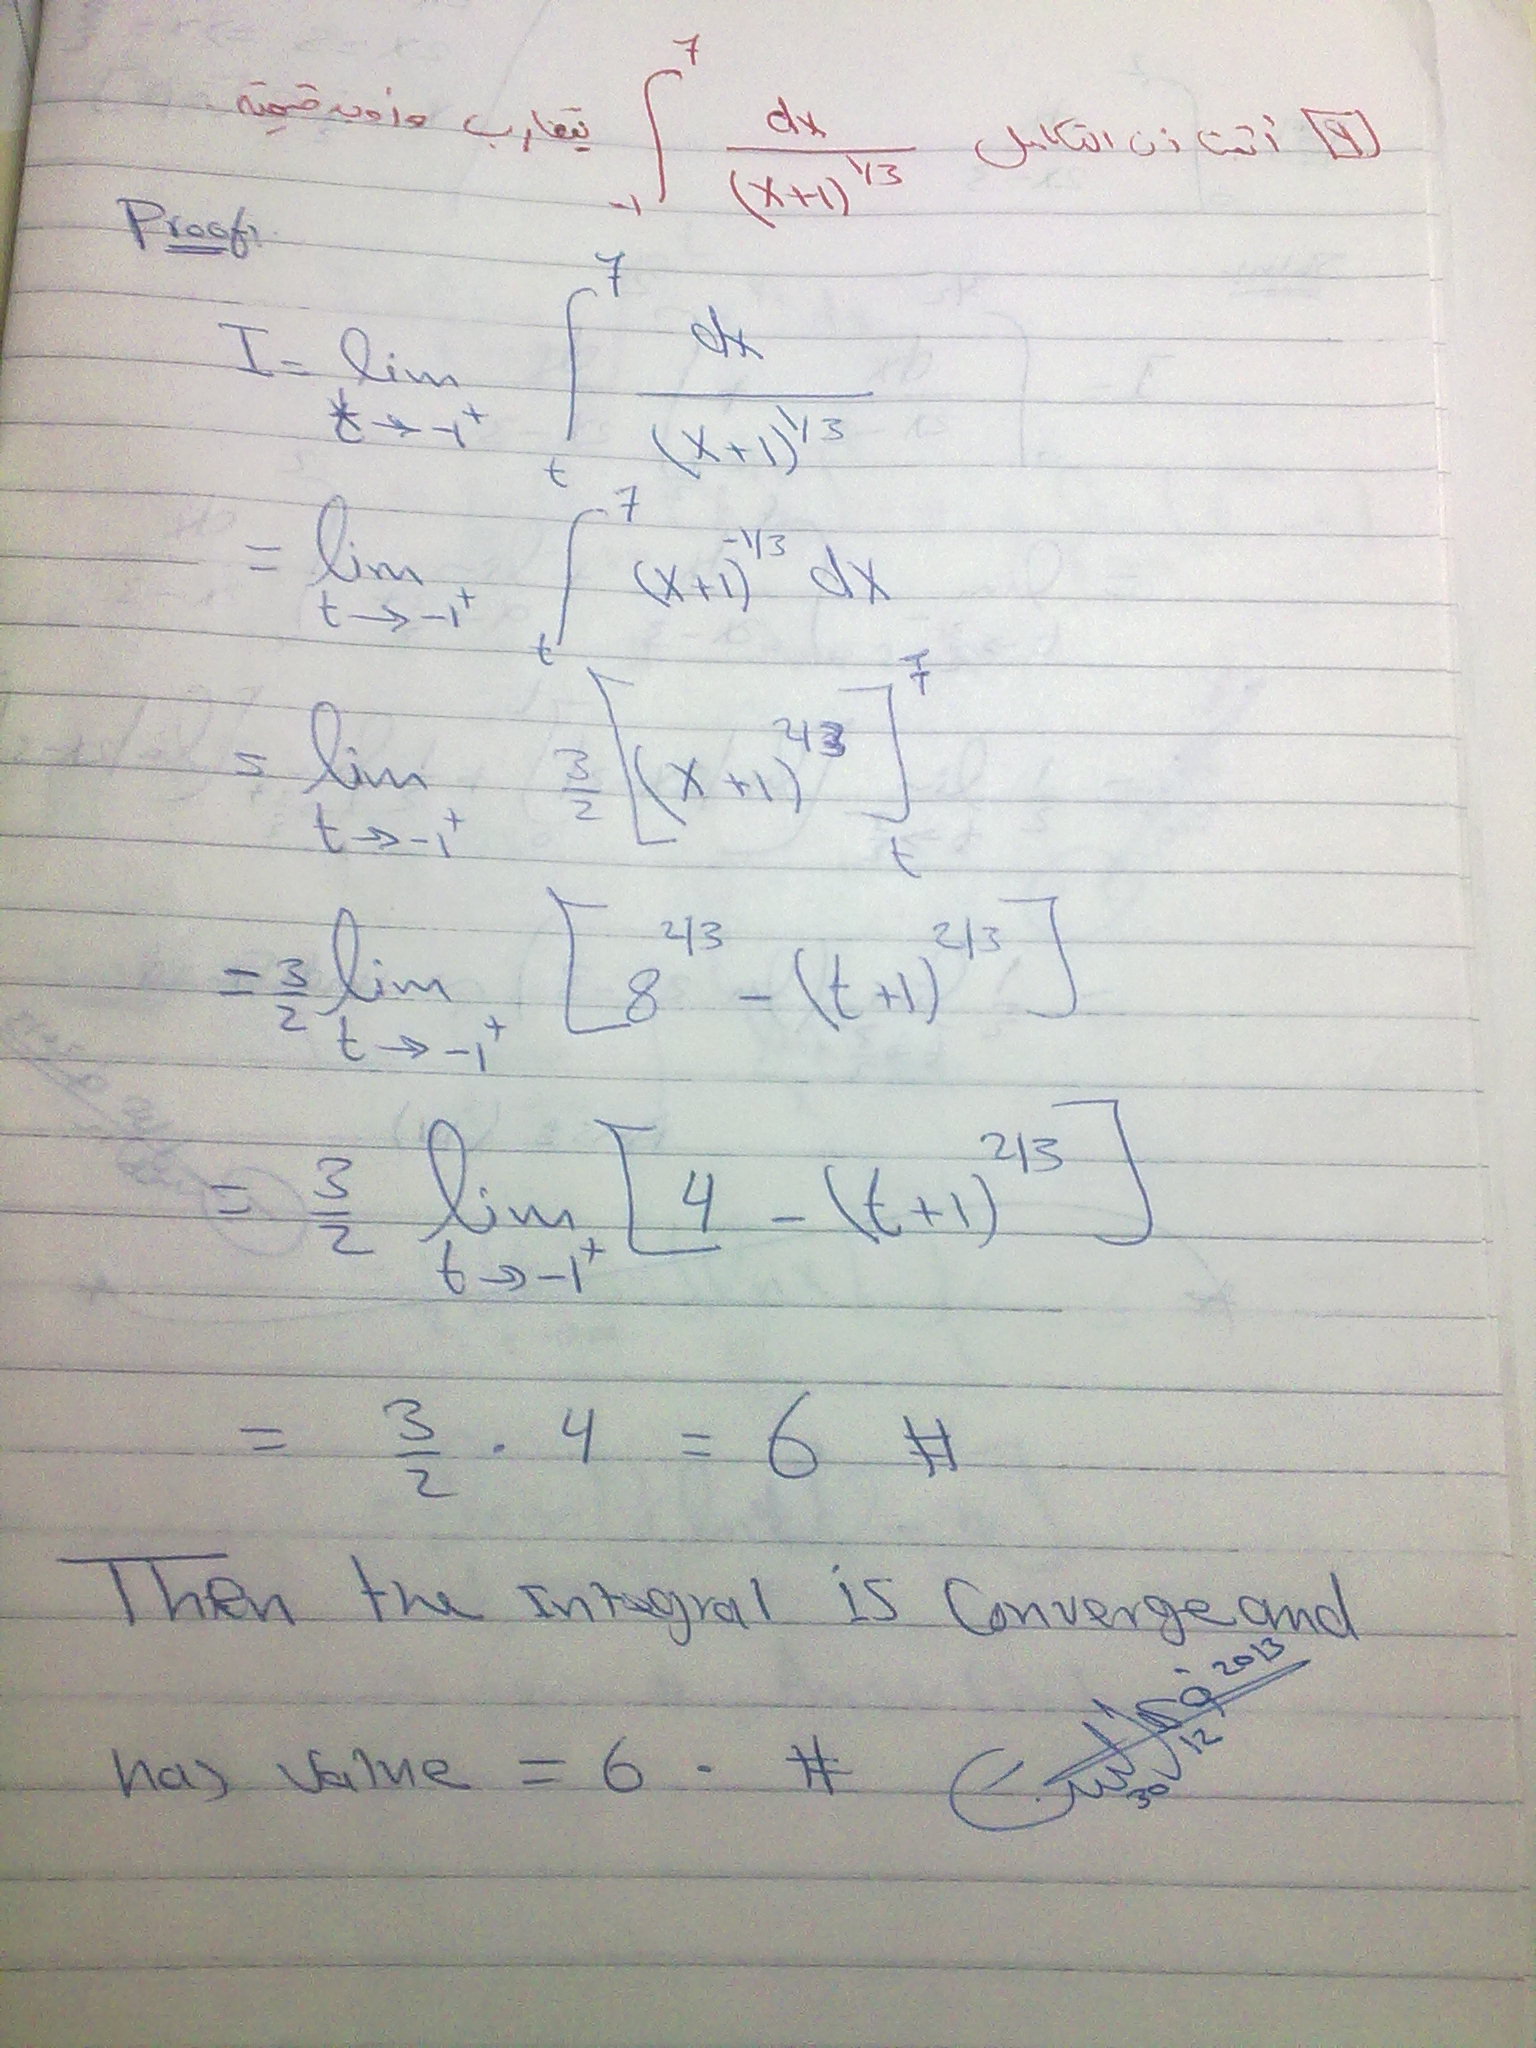 [9] أثبت أن التكامل ∫_{-1}^{7} dx/(x+1)^{1/3} يتقارب وأوجد قيمته.
Proof:
I = lim_{t→-1⁺} ∫_{t}^{7} dx/(x+1)^{1/3}
= lim_{t→-1⁺} ∫_{t}^{7} (x+1)^{-1/3} dx
= lim_{t→-1⁺} 3/2 [(x+1)^{2/3}]_{t}^{7}
= 3/2 lim_{t→-1⁺} [8^{2/3} - (t+1)^{2/3}]
= 3/2 lim_{t→-1⁺} [4 - (t+1)^{2/3}]
= 3/2 . 4 = 6 #
Then the Integral is Converge and
has value = 6 . #
30 12 2013